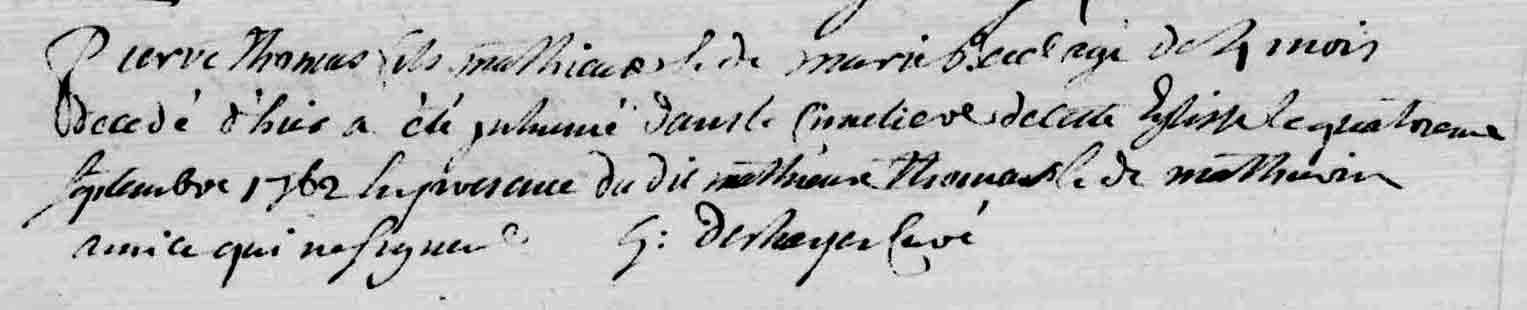 Pierre thomas fils mathieu & de marie agé de 4 mois
decedé d'hier a été inhumé dans le Cimetiere de cette Eglise le quatorzeme
septembre 1762 en presence du dit mathieu Thomas & de mathurin
amice qui ne signent G: Deshayes Curé